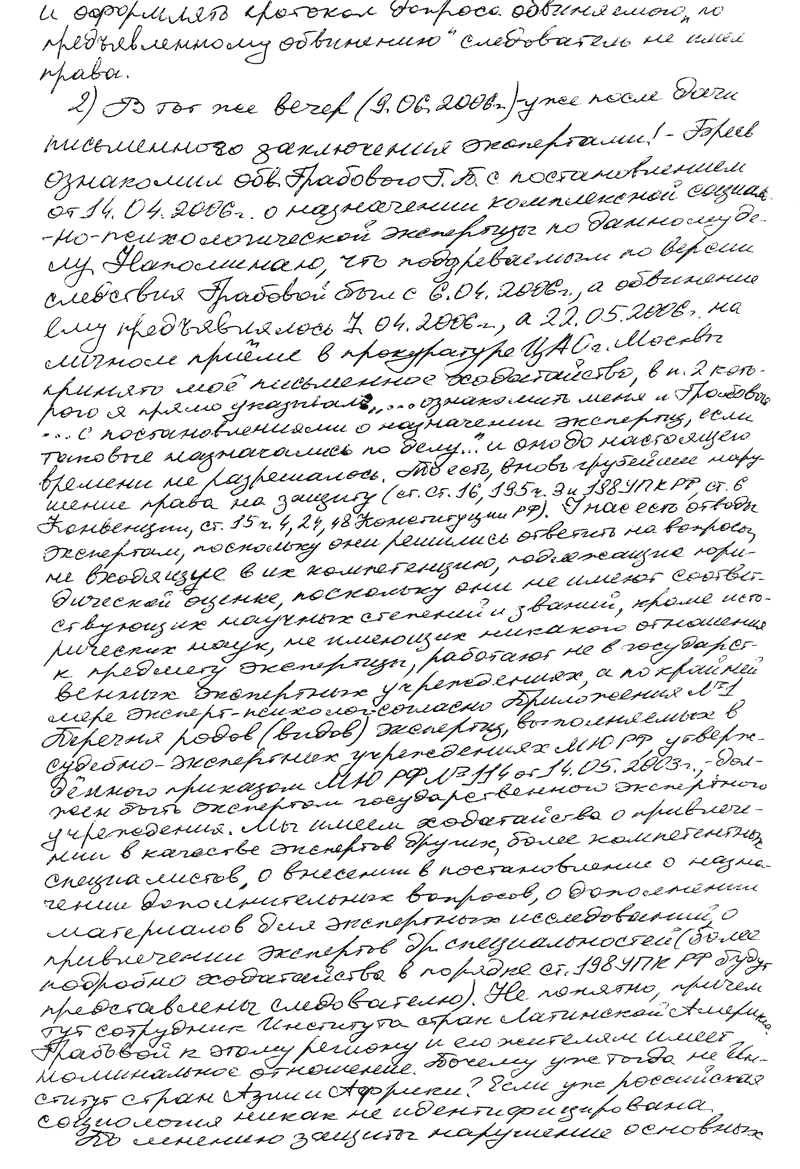 и оформлять протокол допроса обвиняемого „по
предъявленному обвинению“ следователь не имел
права.
2) В тот же вечер (9.06.2006г.) - уже после дачи
письменного заключения экспертами! -
ознакомил обв. Грабового Г.П. с постановлением
от 14.04.2006г. о назначении комплексной социаль-
-но-психологической экспертизы по данному де-
лу. Напоминаю, что подозреваемым по версии
следствия Грабовой был с 6.04.2006г., а обвинение
ему предъявлялось 7.04.2006г., а 22.05.2006г. на
личном приёме в прокуратуре ЦАО г. Москвы
принято моё письменное ходатайство, в п. 2 кото-
рого я прямо указывал: „...ознакомить меня и Грабового
... с постановлениями о назначении экспертиз, если
таковые назначались по делу...“ и оно до настоящего
времени не разрешалось. То есть, вновь грубейшее нару-
шение права на защиту (ст.ст. 16, 195 ч. 3 и 198 УПК РФ, ст. 6
Конвенции, ст. 15 ч. 4, 24, 48 Конституции РФ). У нас есть отводы
экспертам, поскольку они решились ответить на вопросы,
не входящие в их компетенцию, подлежащие юри-
дической оценке, поскольку они не имеют соответ-
ствующих научных степеней и званий, кроме исто-
рических наук, не имеющих никакого отношения
к предмету экспертизы, работают не в государст-
венных экспертных учреждениях, а по крайней
мере эксперт-психолог-согласно Приложения №1
Перечня родов (видов) экспертиз, выполняемых в
судебно-экспертных учреждениях МЮ РФ утверж-
дённого приказом МЮ РФ №114 от 14.05.2003г., - дол-
жен быть экспертом государственного экспертного
учреждения. Мы имеем ходатайства о привлече-
нии в качестве экспертов других, более компетентных
специалистов, о внесении в постановление о назна-
чении дополнительных вопросов, о дополнении
материалов для экспертных исследований, о
привлечении экспертов др. специальностей (более
подробно ходатайства в порядке ст. 198 УПК РФ будут
представлены следователю). Не понятно, причем
тут сотрудник Института стран Латинской Америки.
Грабовой к этому региону и его жителям имеет
номинальное отношение. Почему уж тогда не Ин-
ститут стран Азии и Африки? Если уж российская
социология никак не идентифицирована.
По мнению защиты нарушение основных